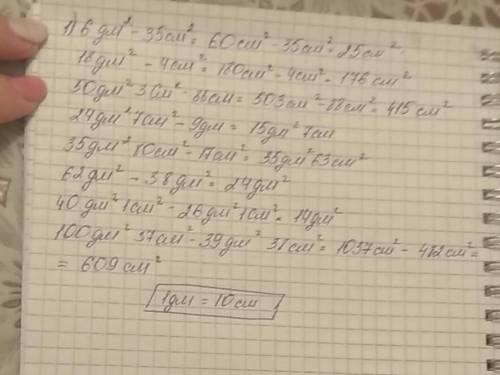 1) 6 дм² - 35 см² = 60 см² - 35 см² = 25 см².
18 дм² - 4 см² = 180 см² - 4 см² = 176 см²
50 дм² 3 см² - 88 см = 503 см² - 88 см² = 415 см²
24 дм² 7 см² - 9 дм = 15 дм² 7 см
35 дм² 80 см² - 17 см² = 35 дм² 63 см²
62 дм² - 38 дм² = 24 дм²
40 дм² 1 см² - 26 дм² 1 см² = 14 дм²
100 дм² 37 см² - 39 дм² 38 см² = 1037 см² - 482 см² =
= 609 см²
1 дм = 10 см